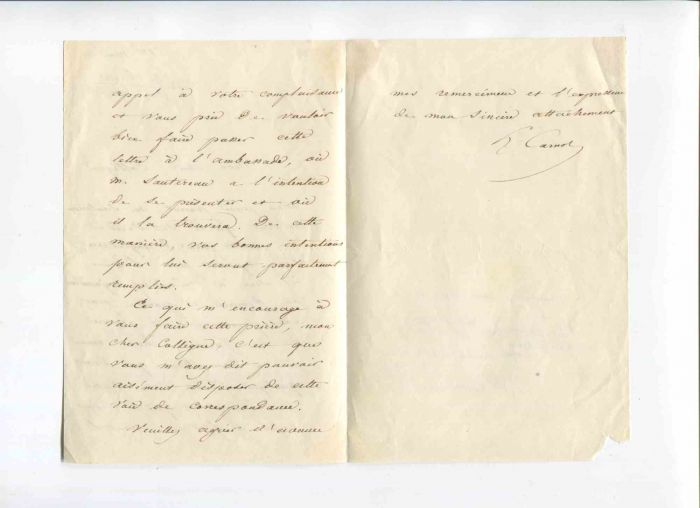 appel à votre complaisance
et vous prie de vouloir
bien faire passer cette
lettre à l'ambassade, où
M. Sautereau a l'intention
de se présenter et où
il la trouvera. De cette
manière, vos bonnes intentions
pour lui seront parfaitement
remplies.
Ce qui m'encourage à
vous faire cette prière, mon
cher Collègue, c'est que
vous m'avez dit pouvoir
aisément disposer de cette
voie de correspondance.
Veuillez agréer d'avance
mes remerciemens et l'expression
de mon sincère attachement
Carnot